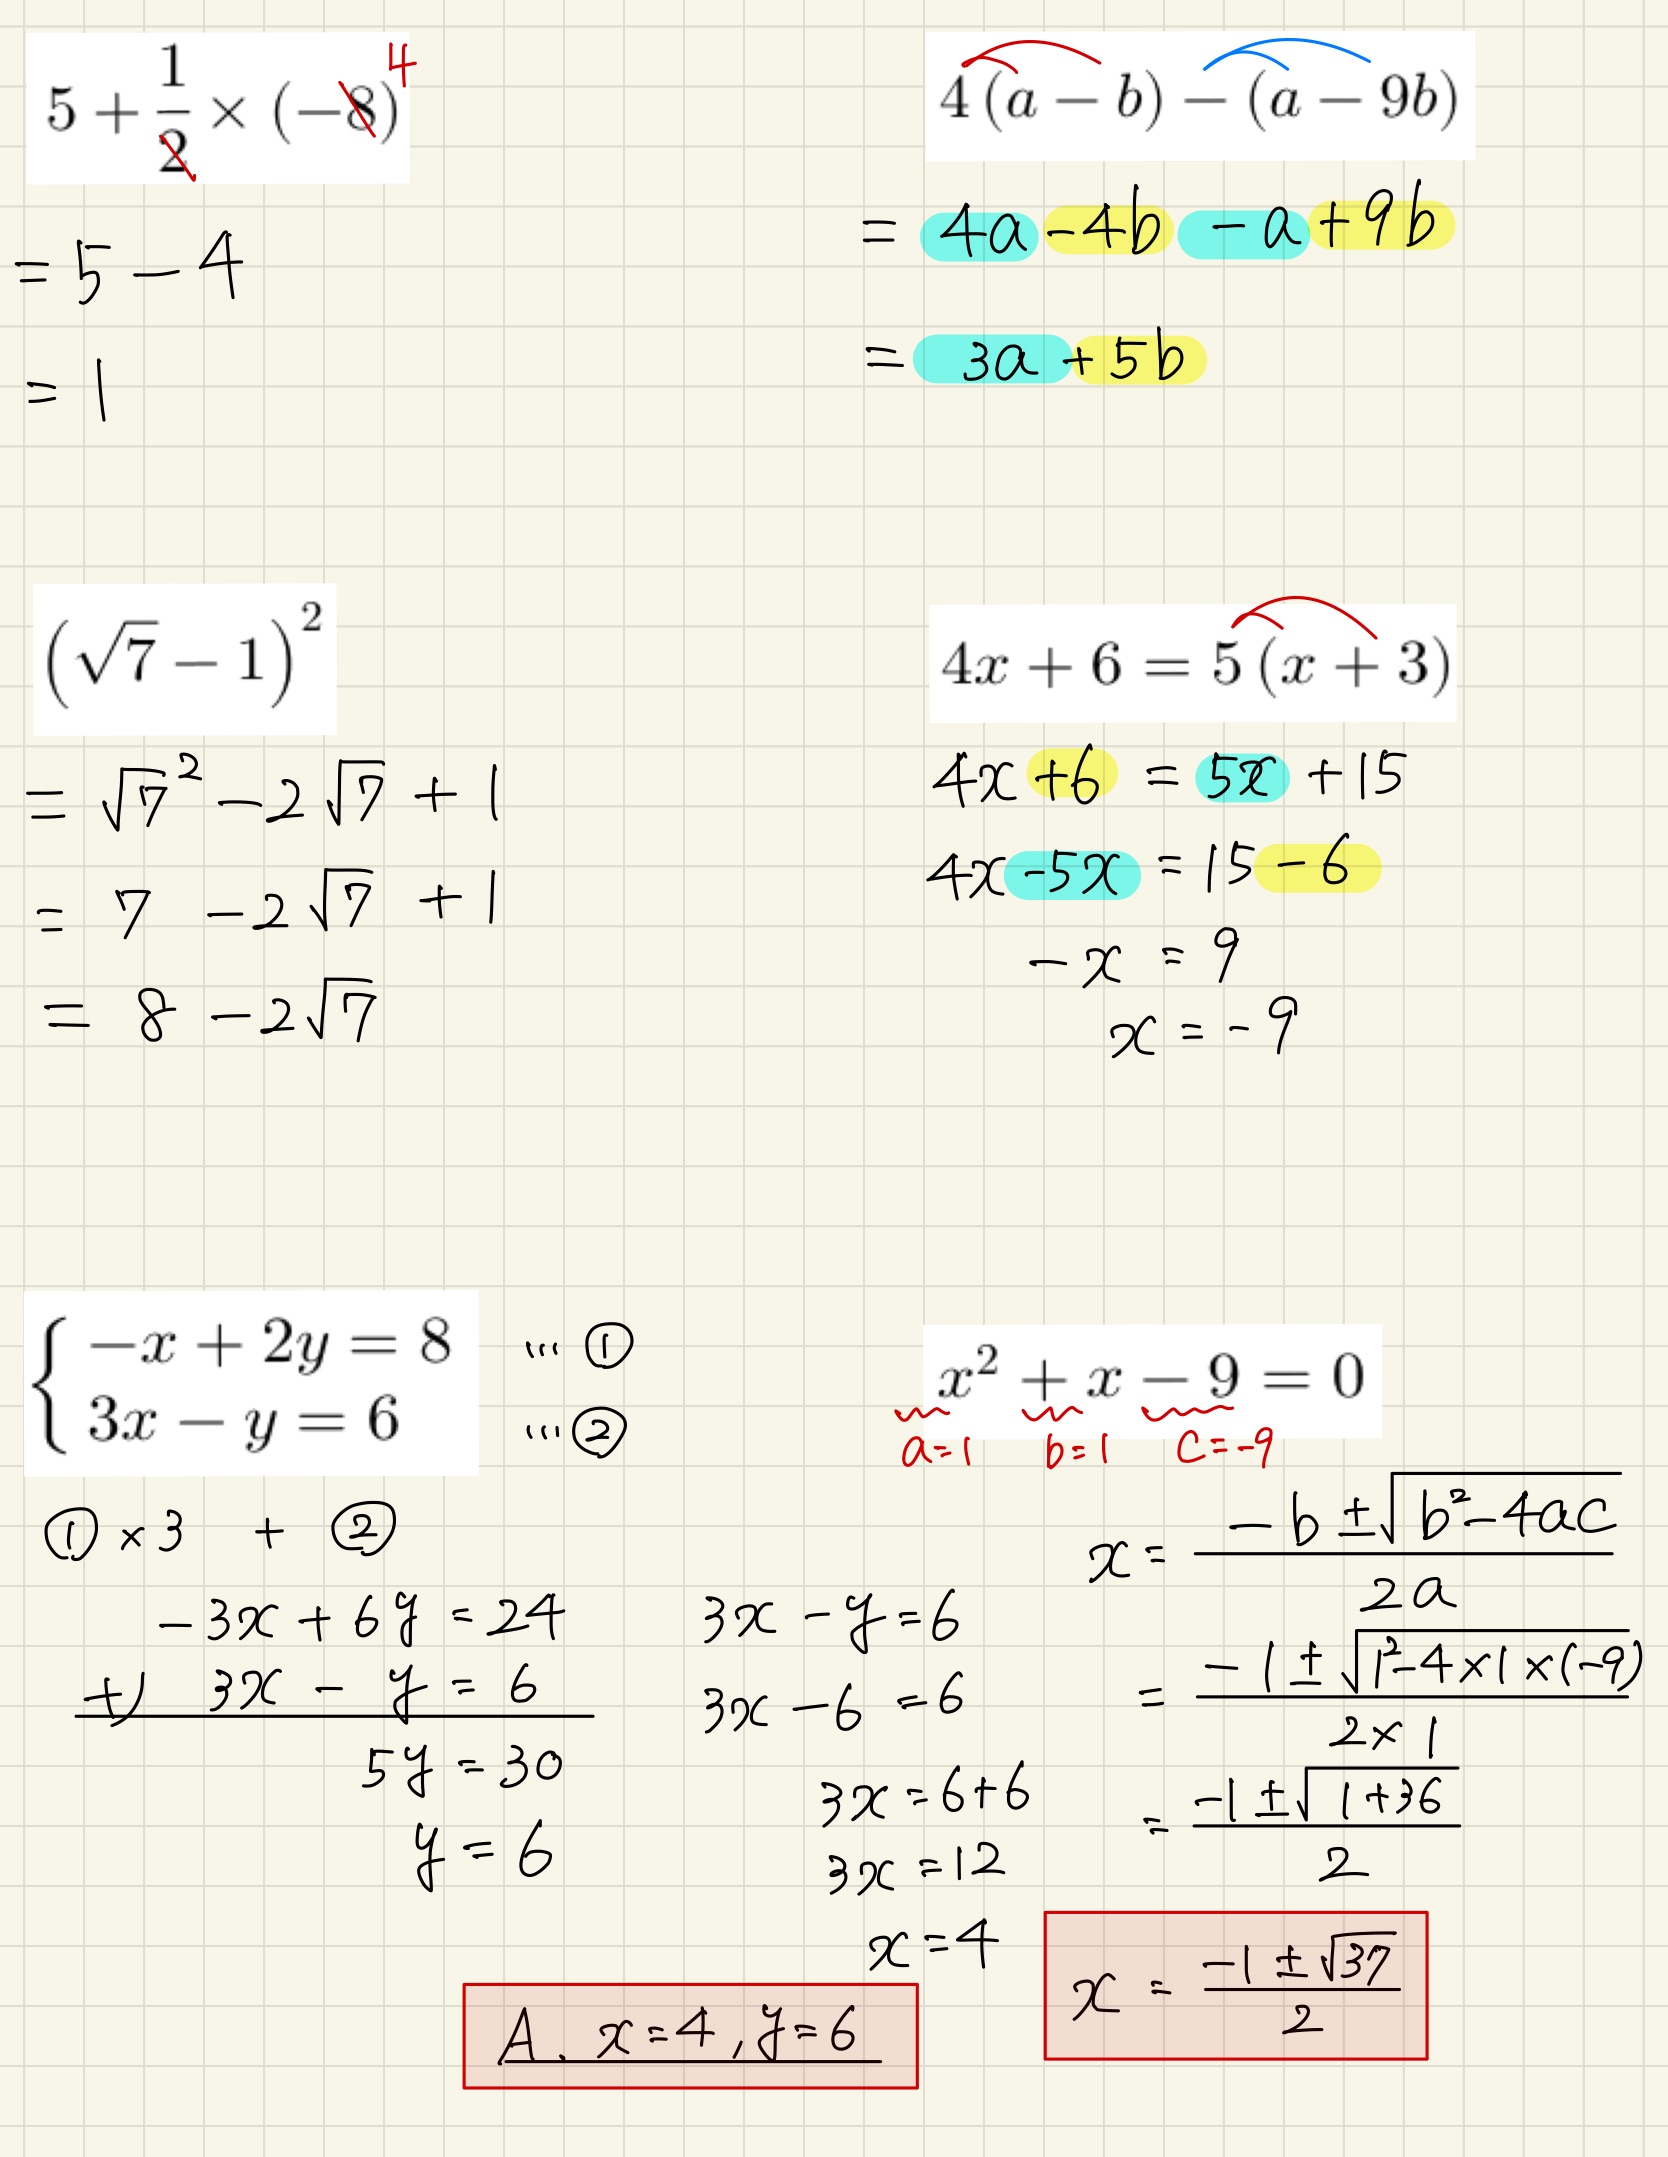 5 + 1/2 × (−8) 4
= 5 − 4
= 1
4(a − b) − (a − 9b)
= 4a −4b −a +9b
= 3a + 5b
(√7 − 1)²
= √7² − 2√7 + 1
= 7 − 2√7 + 1
= 8 − 2√7
4x + 6 = 5(x + 3)
4x +6 = 5x +15
4x −5x = 15 −6
−x = 9
x = −9
−x + 2y = 8 … ①
3x − y = 6 … ②
① ×3 + ②
−3x + 6y = 24
+) 3x − y = 6
5y = 30
y = 6
3x − y = 6
3x − 6 = 6
3x = 6+6
3x = 12
x = 4
A. x = 4, y = 6
x² + x − 9 = 0
a=1 b=1 c=−9
x = (−b ± √(b²−4ac))/2a
= (−1 ± √(1²−4×1×(−9)))/(2×1)
= (−1 ± √(1+36))/2
x = (−1 ± √37)/2